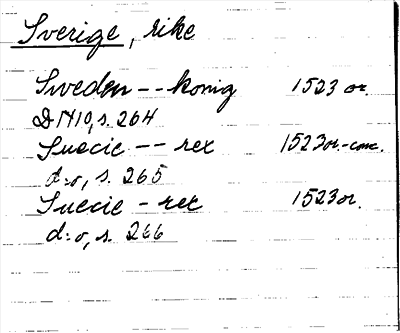 Sverige, rike
Sweden -- konig 1523 or.
DN10, s. 264
Suecie -- rex 1523 or.-conc.
d:o, s. 265
Suecie - rex 1523 or.
d:o, s. 266